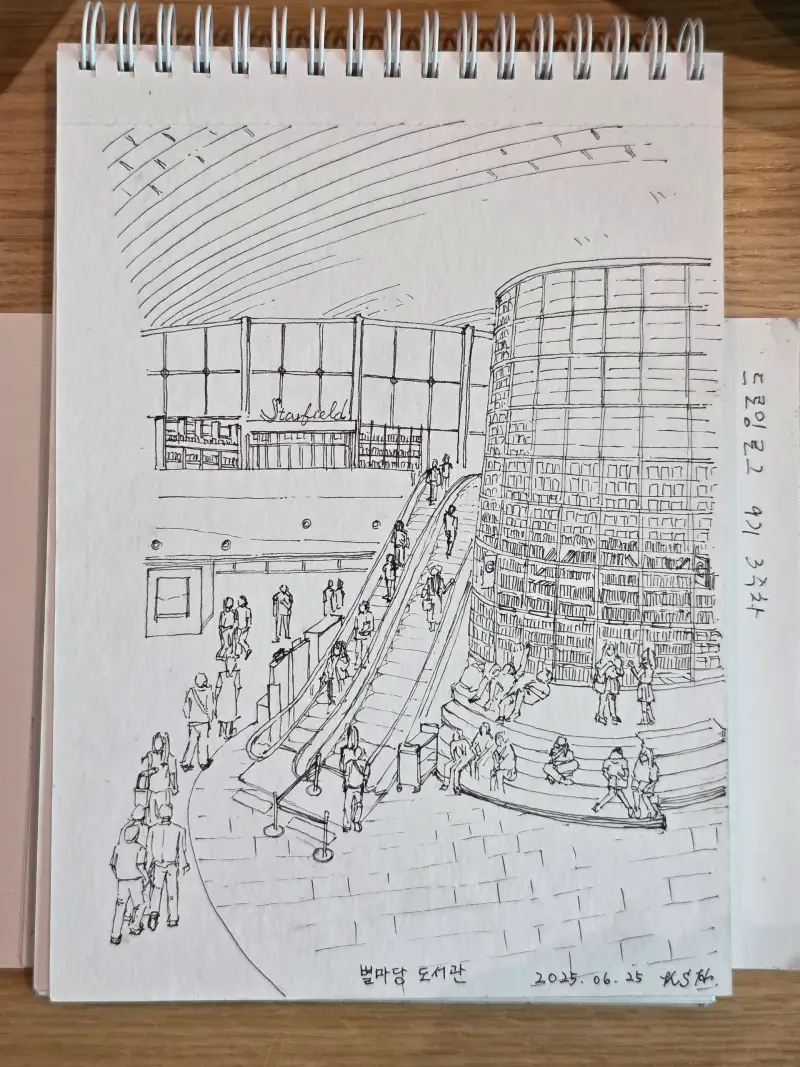 Starfield
별마당 도서관
2025.06.25 K.S
드로잉로그 9기 3주차